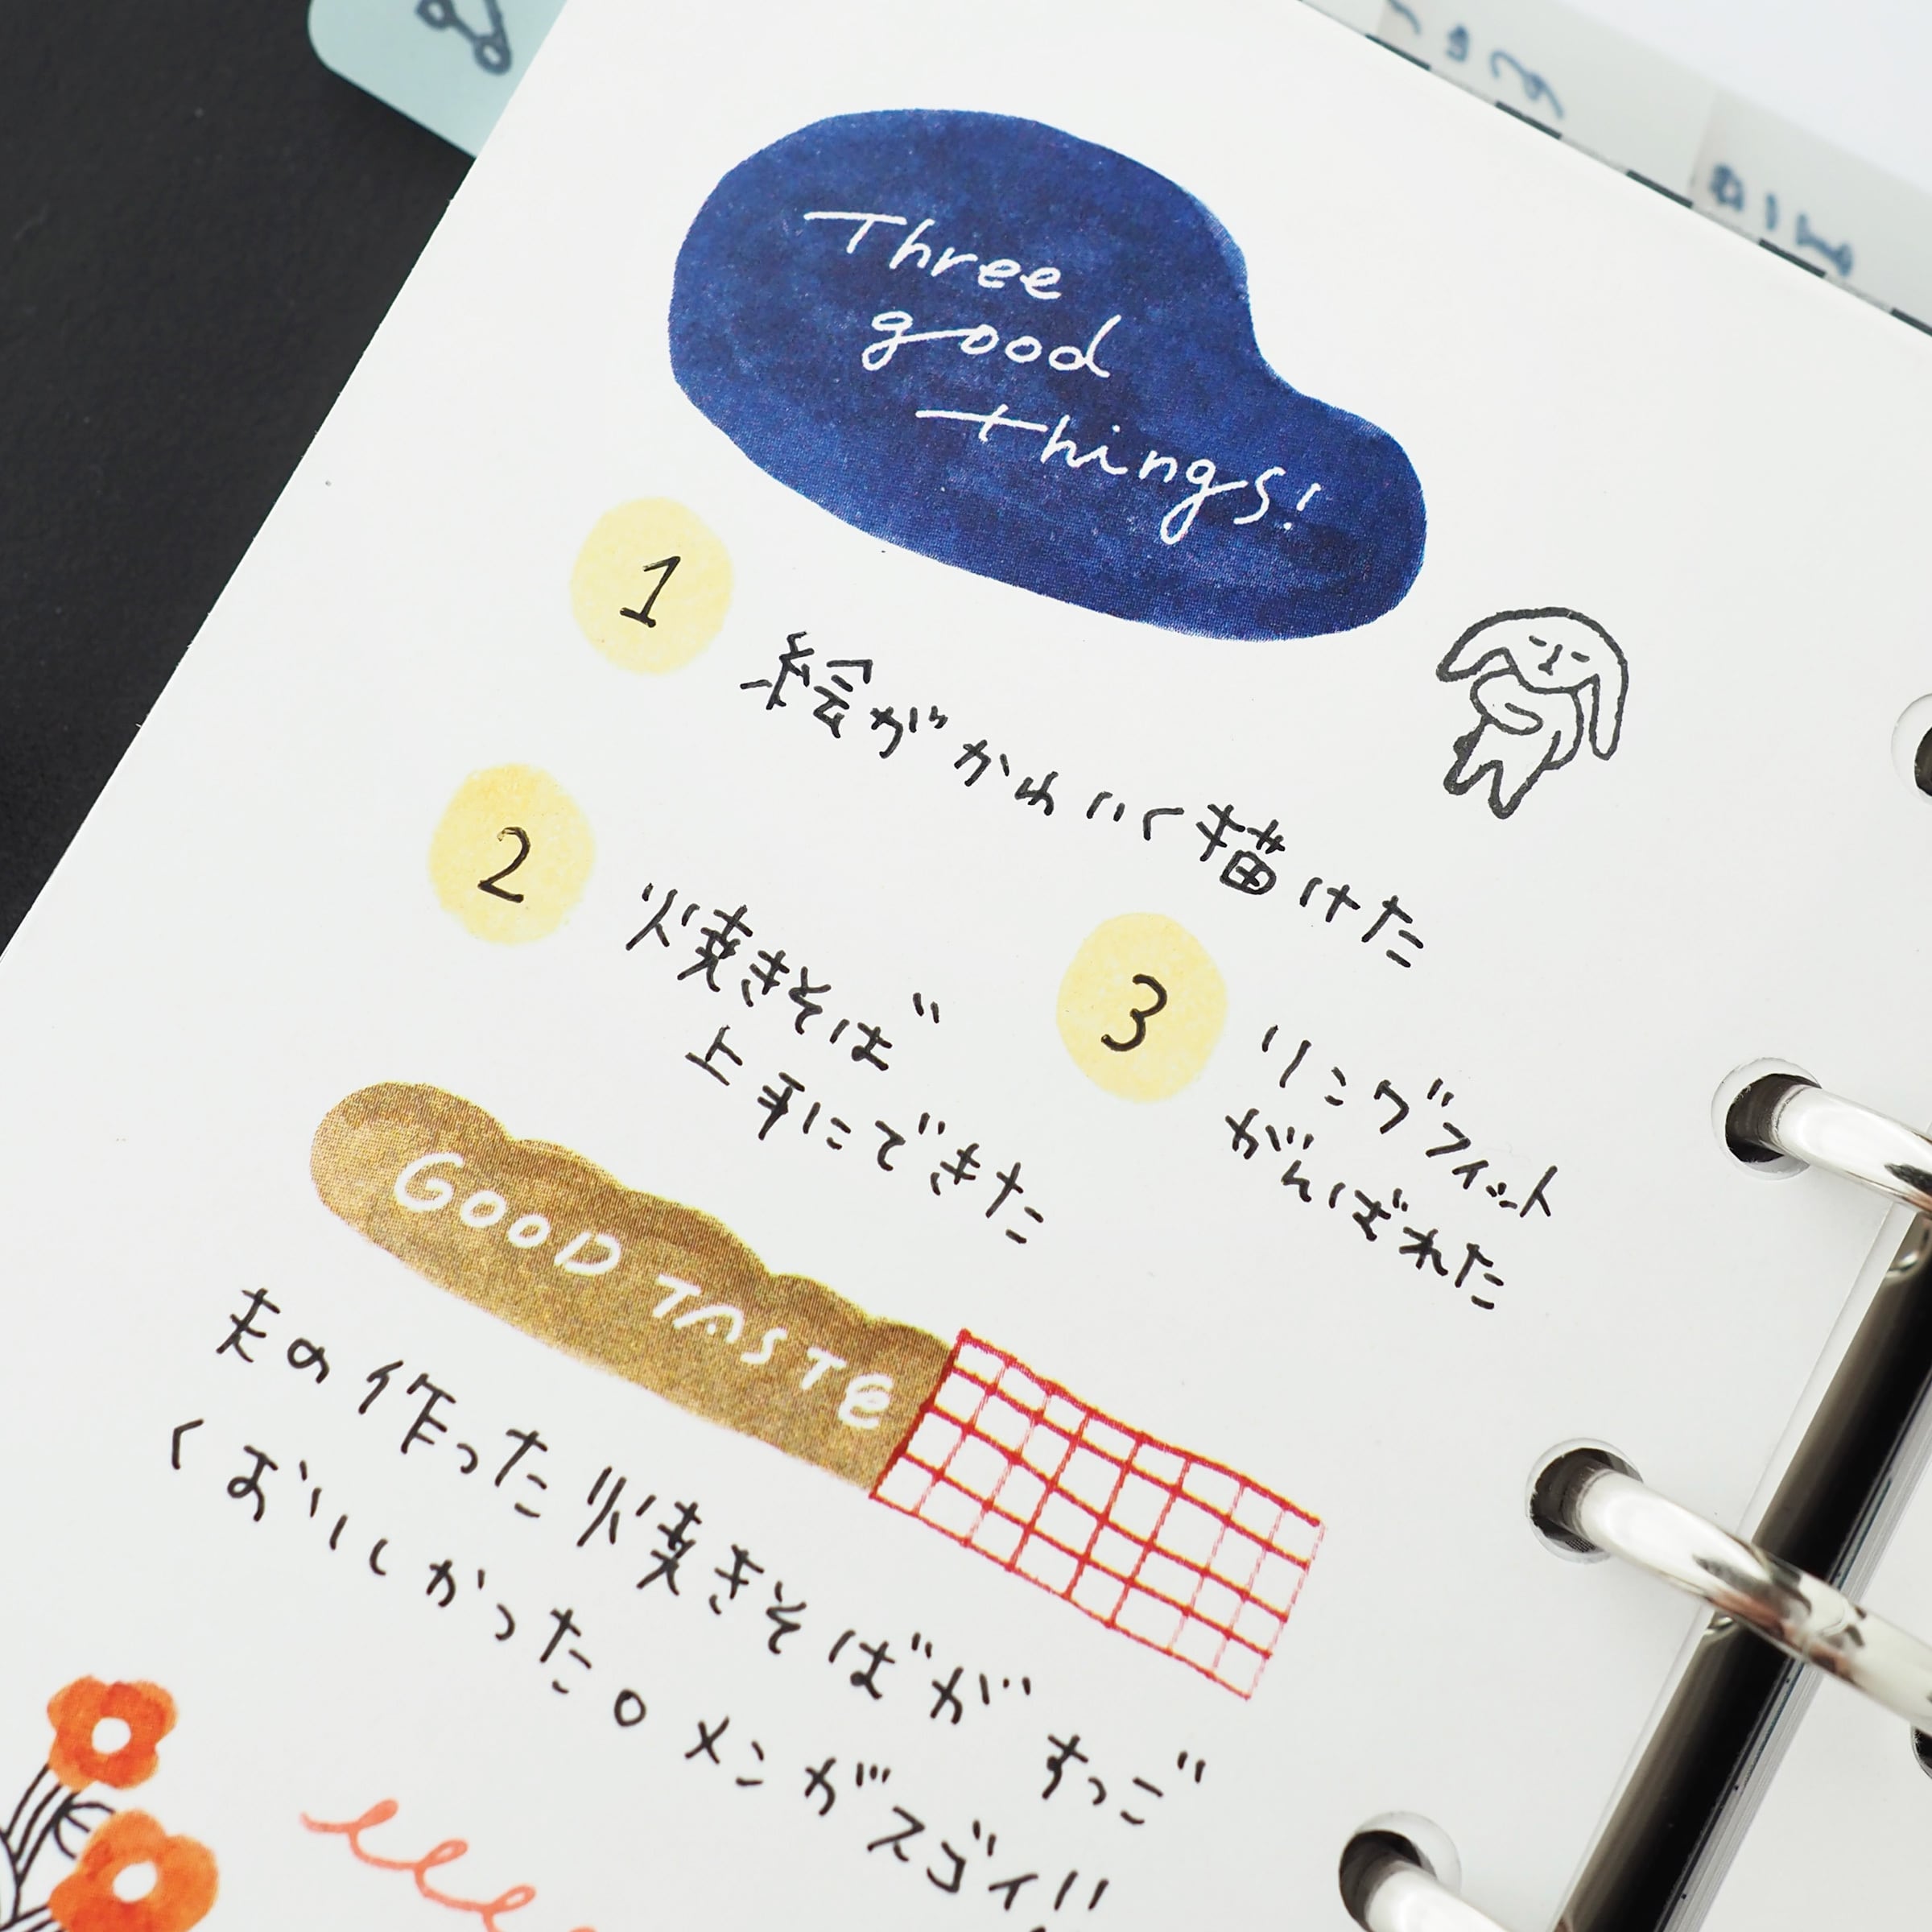 Three
good
things!
1
絵がかわいく描けた
2
焼きそば
上手にできた
3
リングフィット
がんばれた
GOOD TASTE
夫の作った焼きそばがすっご
くおいしかった。メンがスゴイ!!